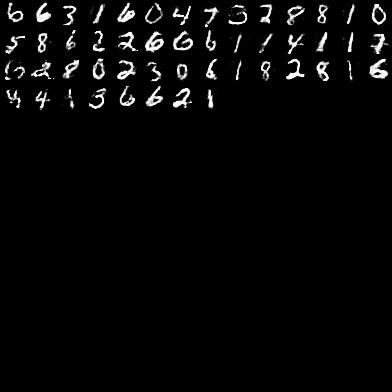 6 6 3 1 6 0 4 7 3 2 8 8 1 0
5 8 6 2 2 6 6 6 1 1 4 1 1 7
2 8 0 2 3 0 6 1 8 2 8 1 6
4 4 1 3 6 6 2 1